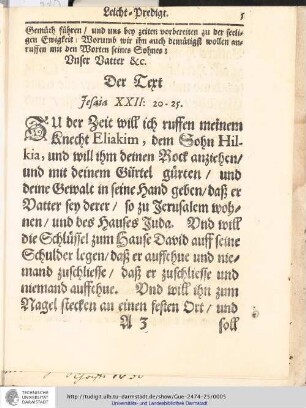 Leicht-Predigt. 5
Gemüth führen / und uns bey zeiten vorbereiten zu der seeli-
gen Ewigkeit: Worumb wir ihn auch demütigst wollen an-
ruffen mit den Worten seines Sohnes:
Unser Vatter &c.
Der Text
Jesaia XXII: 20-25.
ZU der Zeit will ich ruffen meinem
Knecht Eliakim, dem Sohn Hil-
kia, und will ihm deinen Rock anziehen /
und mit deinem Gürtel gürten / und
deine Gewalt in seine Hand geben / daß er
Vatter sey derer / so zu Jerusalem woh-
nen / und des Hauses Juda. Und will
die Schlüssel zum Hause David auff seine
Schulder legen / daß er auffthue und nie-
mand zuschliesse / daß er zuschliesse und
niemand auffthue. Und will ihn zum
Nagel stecken an einen festen Ort / und
A 3 soll
TECHNISCHE
UNIVERSITÄT
DARMSTADT
http://tudigit.ulb.tu-darmstadt.de/show/Gue-2474-25/0005
Universitäts- und Landesbibliothek Darmstadt